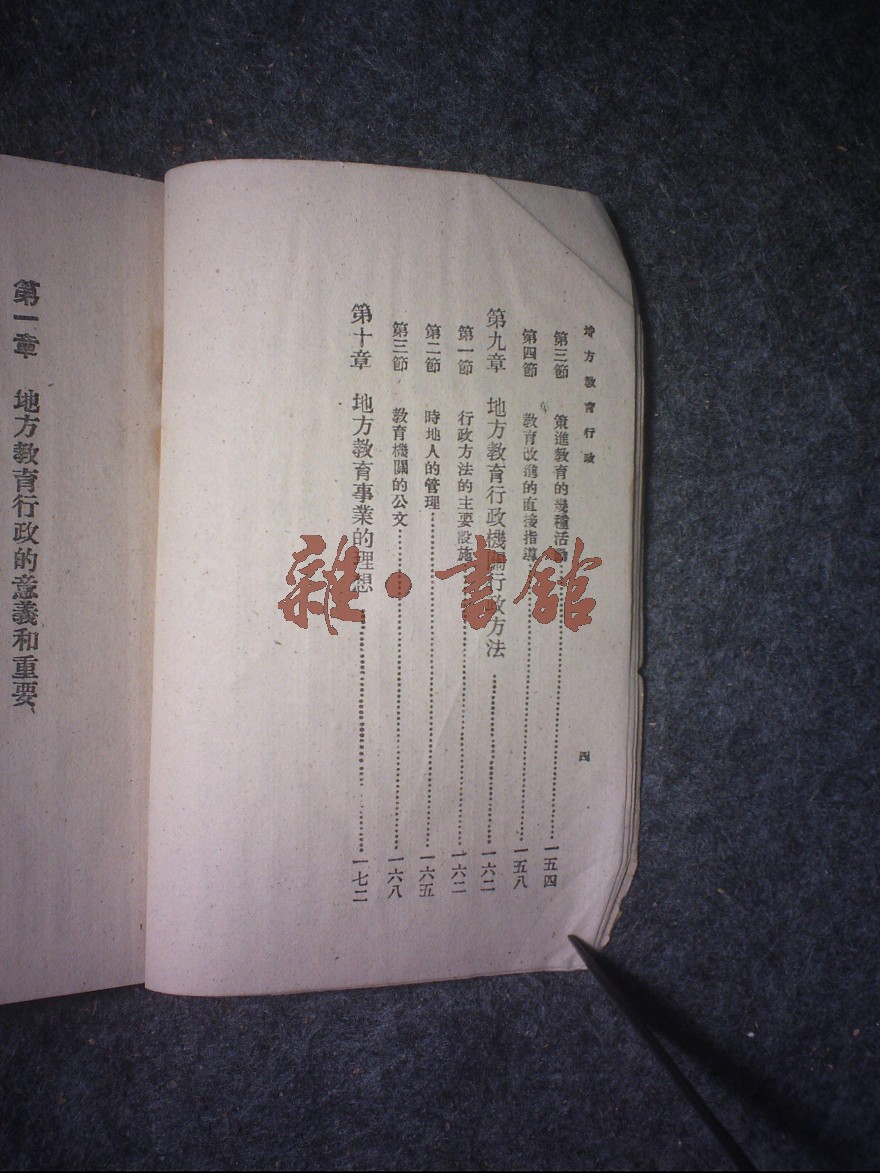 地方教育行政
四
第三節　策進教育的幾種活動……一五四
第四節　教育改進的直接指導……一五八
第九章　地方教育行政機關行政方法……一六二
第一節　行政方法的主要設施……一六二
第二節　時地人的管理……一六五
第三節　教育機關的公文……一六八
第十章　地方教育事業的理想……一七二
第一章　地方教育行政的意義和重要
雜·書館